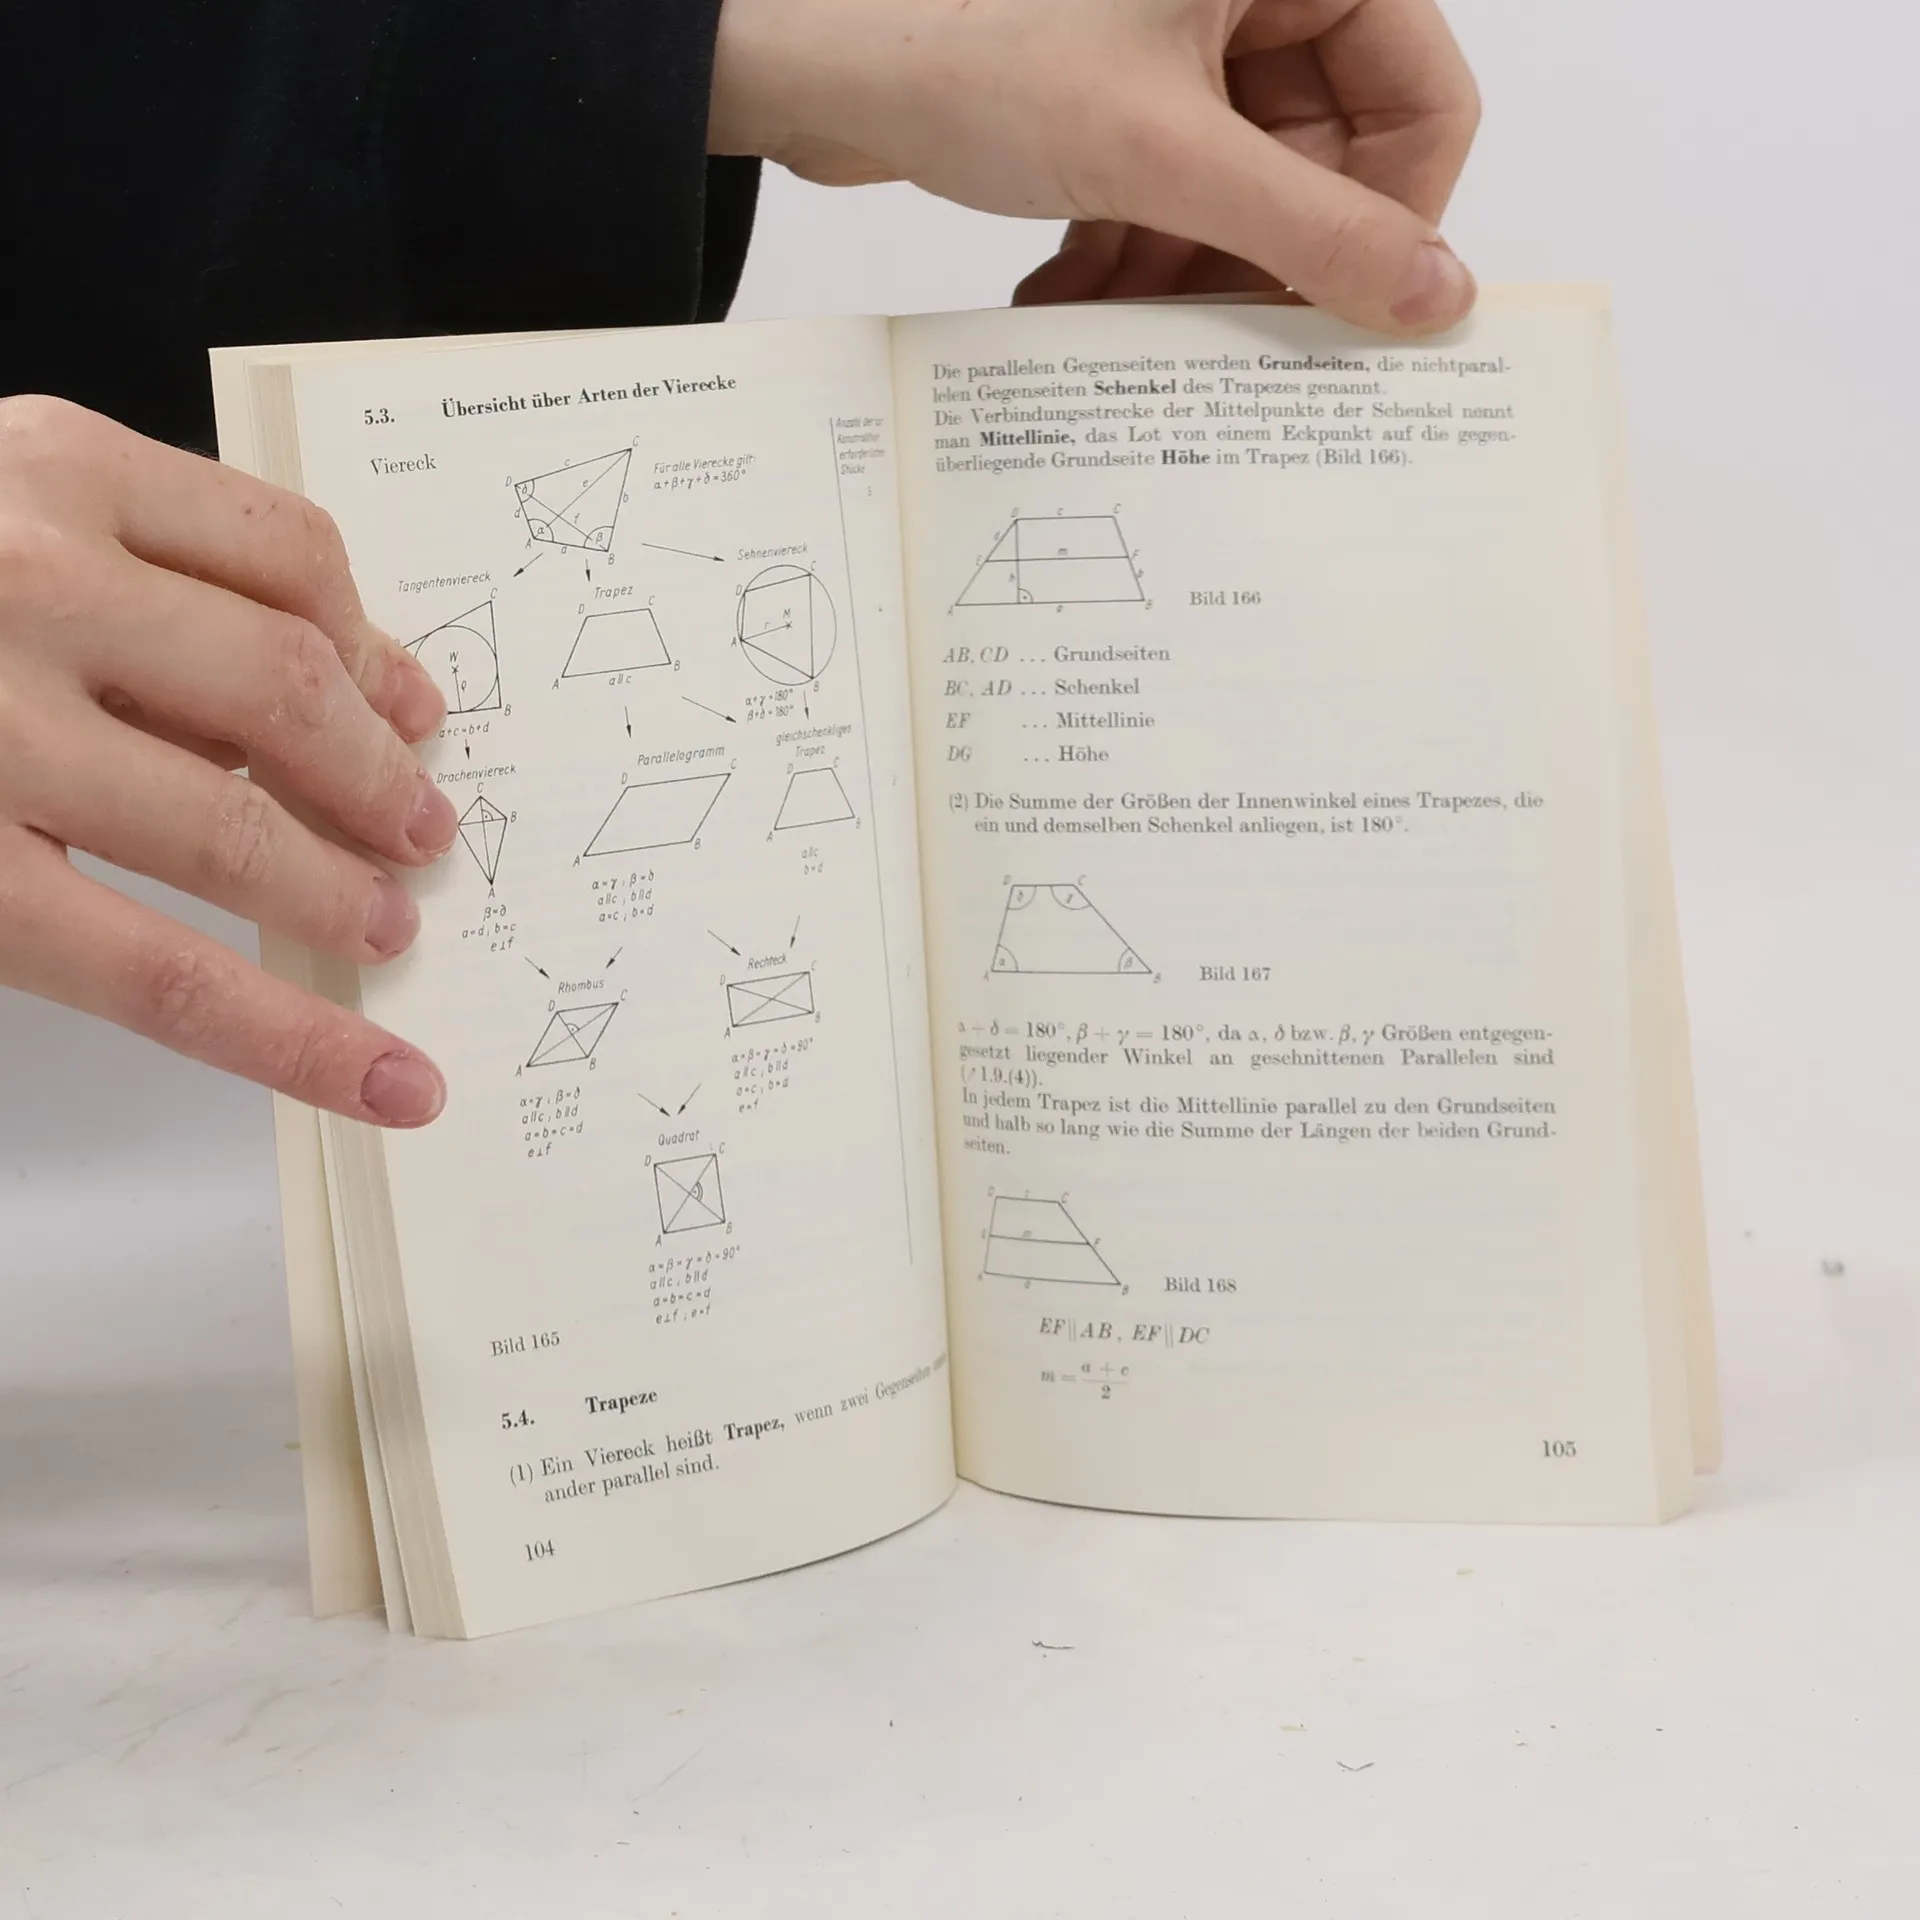 5.3. Übersicht über Arten der Vierecke
Viereck
Anzahl der zur
Konstruktion
erforderlichen
Stücke
5
Für alle Vierecke gilt:
α+β+γ+δ=360°
D c C
e
d f b
α β
A a B
Tangentenviereck
Trapez
Sehnenviereck
C
W
ρ
B
a+c=b+d
D C
A B
a∥c
D C
M
r
A
B
α+γ=180°
β+δ=180°
4
Drachenviereck
Parallelogramm
gleichschenkliges
Trapez
C
B
A
β=δ
a=d; b=c
e⊥f
D C
A B
α=γ; β=δ
a∥c; b∥d
a=c; b=d
D C
A B
a∥c
b=d
Rhombus
Rechteck
D C
A B
α=γ; β=δ
a∥c; b∥d
a=b=c=d
e⊥f
D C
A B
α=β=γ=δ=90°
a∥c; b∥d
a=c; b=d
e=f
Quadrat
D C
A B
α=β=γ=δ=90°
a∥c; b∥d
a=b=c=d
e⊥f; e=f
Bild 165
5.4. Trapeze
(1) Ein Viereck heißt Trapez, wenn zwei Gegenseiten
ander parallel sind.
104
Die parallelen Gegenseiten werden Grundseiten, die nichtparal-
lelen Gegenseiten Schenkel des Trapezes genannt.
Die Verbindungsstrecke der Mittelpunkte der Schenkel nennt
man Mittellinie, das Lot von einem Eckpunkt auf die gegen-
überliegende Grundseite Höhe im Trapez (Bild 166).
D c C
d
E m F
h b
A a B
Bild 166
AB, CD ... Grundseiten
BC, AD ... Schenkel
EF ... Mittellinie
DG ... Höhe
(2) Die Summe der Größen der Innenwinkel eines Trapezes, die
ein und demselben Schenkel anliegen, ist 180°.
D C
δ γ
α β
A B
Bild 167
α + δ = 180°, β + γ = 180°, da α, δ bzw. β, γ Größen entgegen-
gesetzt liegender Winkel an geschnittenen Parallelen sind
(↗ 1.9.(4)).
In jedem Trapez ist die Mittellinie parallel zu den Grundseiten
und halb so lang wie die Summe der Längen der beiden Grund-
seiten.
D c C
E m F
A a B
Bild 168
EF ∥ AB, EF ∥ DC
m = a + c
2
105